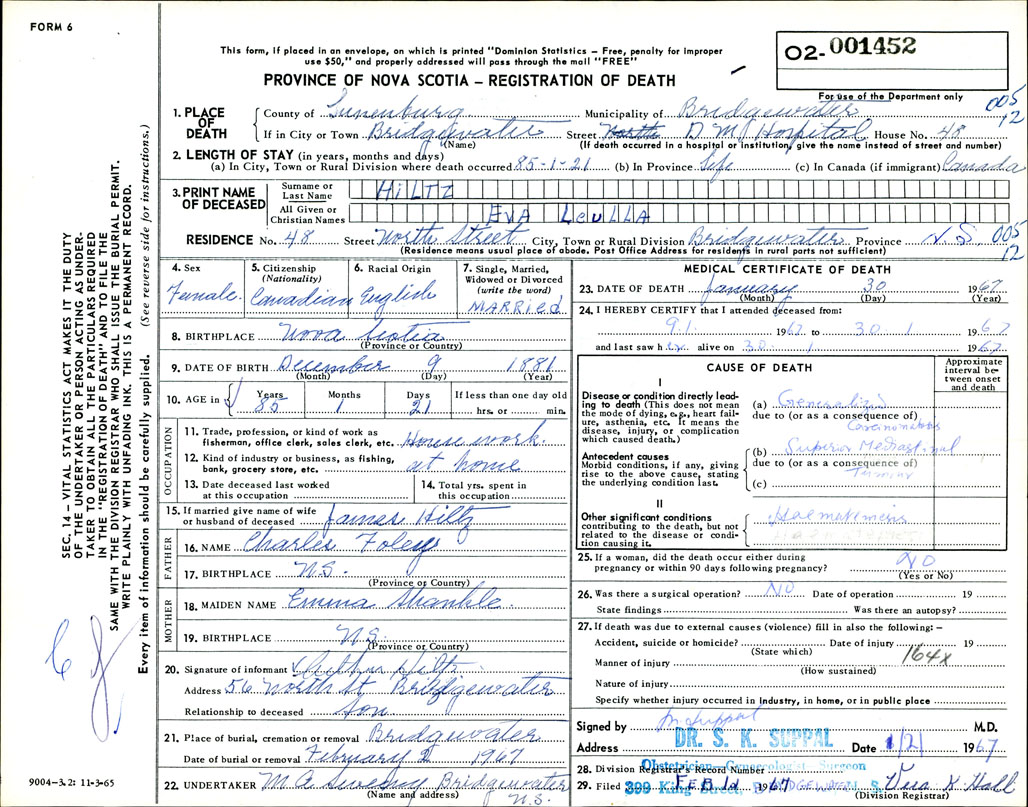 FORM 6
This form, if placed in an envelope, on which is printed "Dominion Statistics – Free, penalty for improper
use $50," and properly addressed will pass through the mail "FREE"
O2- 001452
PROVINCE OF NOVA SCOTIA – REGISTRATION OF DEATH
For use of the Department only
005
12
1. PLACE OF DEATH
County of Lunenburg Municipality of Bridgewater
If in City or Town Bridgewater Street North D M Hospital House No. 48
(Name) (If death occurred in a hospital or institution, give the name instead of street and number)
2. LENGTH OF STAY (in years, months and days)
(a) In City, Town or Rural Division where death occurred 85-1-21 (b) In Province Life (c) In Canada (if immigrant) Canada
3. PRINT NAME OF DECEASED
Surname or Last Name HILTZ
All Given or Christian Names EVA LeULLA
RESIDENCE No. 48 Street North Street City, Town or Rural Division Bridgewater Province N.S 005
12
(Residence means usual place of abode. Post Office Address for residents in rural parts not sufficient)
4. Sex
Female
5. Citizenship
(Nationality)
Canadian
6. Racial Origin
English
7. Single, Married,
Widowed or Divorced
(write the word)
MARRIED
8. BIRTHPLACE Nova Scotia
(Province or Country)
9. DATE OF BIRTH December 9 1881
(Month) (Day) (Year)
10. AGE in
Years Months Days If less than one day old
85 1 21 hrs. or min.
OCCUPATION
11. Trade, profession, or kind of work as
fisherman, office clerk, sales clerk, etc. House work
12. Kind of industry or business, as fishing,
bank, grocery store, etc. at home
13. Date deceased last worked
at this occupation
14. Total yrs. spent in
this occupation
15. If married give name of wife
or husband of deceased James Hiltz
FATHER
16. NAME Charles Foley
17. BIRTHPLACE N.S.
(Province or Country)
MOTHER
18. MAIDEN NAME Emma
19. BIRTHPLACE N.S.
(Province or Country)
20. Signature of informant Arthur Hiltz
Address 56 North St Bridgewater
Relationship to deceased Son
21. Place of burial, cremation or removal Bridgewater
Date of burial or removal February 2 1967
22. UNDERTAKER Bridgewater
(Name and address) N.S.
MEDICAL CERTIFICATE OF DEATH
23. DATE OF DEATH January 30 1967
(Month) (Day) (Year)
24. I HEREBY CERTIFY that I attended deceased from:
9.1. 1967 to 30 1 1967
and last saw her alive on 30 1 1967
CAUSE OF DEATH
Approximate
interval be-
tween onset
and death
I
Disease or condition directly lead-
ing to death (This does not mean
the mode of dying, e.g., heart fail-
ure, asthenia, etc. It means the
disease, injury, or complication
which caused death.)
(a) Generalized
due to (or as a consequence of)
Carcinomatosis
Antecedent causes
Morbid conditions, if any, giving
rise to the above cause, stating
the underlying condition last.
(b) Superior Mediastinal
due to (or as a consequence of)
(c)
II
Other significant conditions
contributing to the death, but not
related to the disease or condi-
tion causing it.
Haematemesis
25. If a woman, did the death occur either during
pregnancy or within 90 days following pregnancy? NO
(Yes or No)
26. Was there a surgical operation? NO Date of operation 19
State findings Was there an autopsy?
27. If death was due to external causes (violence) fill in also the following: –
Accident, suicide or homicide? Date of injury 19
(State which) 164X
Manner of injury
(How sustained)
Nature of injury
Specify whether injury occurred in industry, in home, or in public place
Signed by M.D.
DR. S. K. SUPPAL
Address Date 1/2/ 1967
Obstetrician-Gynecologist-Surgeon
28. Division Registrar's Record Number
399 King Street, BRIDGEWATER, N. S.
29. Filed FEB 1967 Vera K Hall
(Division Registrar)
SEC. 14 – VITAL STATISTICS ACT MAKES IT THE DUTY
OF THE UNDERTAKER OR PERSON ACTING AS UNDER-
TAKER TO OBTAIN ALL THE PARTICULARS REQUIRED
IN THE "REGISTRATION OF DEATH" AND TO FILE THE
SAME WITH THE DIVISION REGISTRAR WHO SHALL ISSUE THE BURIAL PERMIT.
WRITE PLAINLY WITH UNFADING INK. THIS IS A PERMANENT RECORD.
Every item of information should be carefully supplied. (See reverse side for instructions.)
9004-3.2: 11-3-65